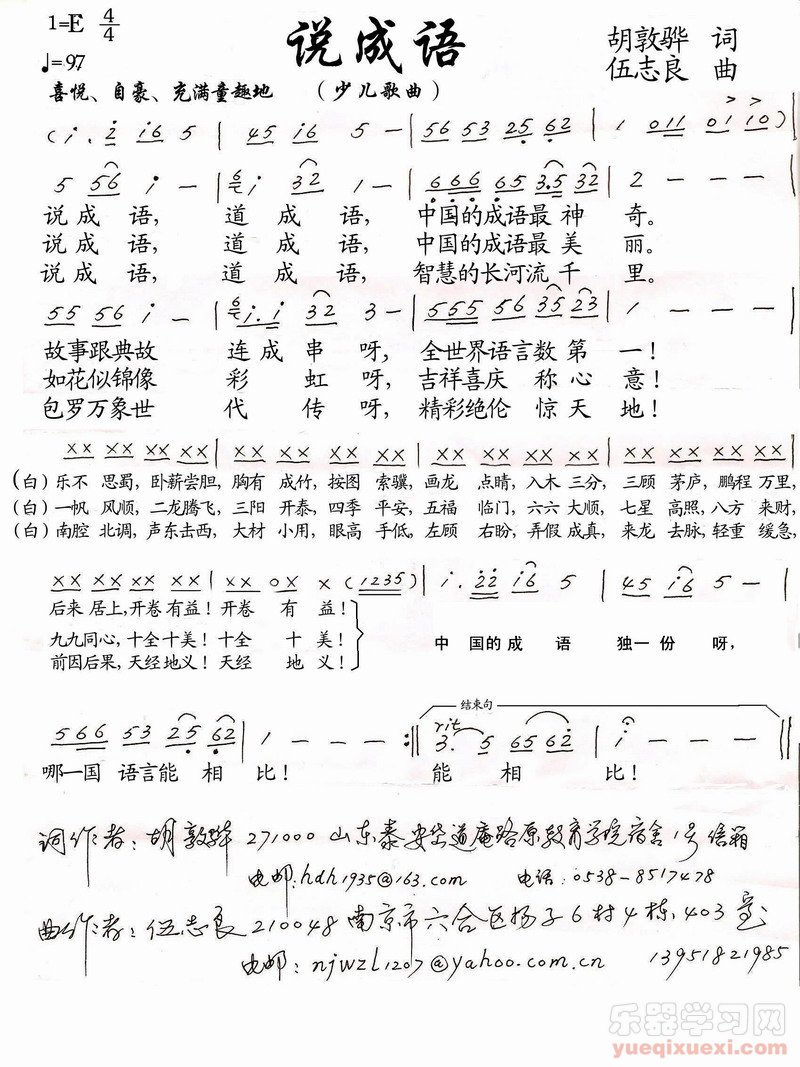 1=E 4/4 说成语 胡敦骅 词
♩=97 伍志良 曲
喜悦、自豪、充满童趣地 (少儿歌曲)
(i. 2 i6 5 | 45 i6 5 - | 56 53 25 62 | 1 011 01 10)
5 56 i - | 6 i 32 1 - | 666 65 3.5 32 | 2 - - - |
说成语, 道成语, 中国的成语最神奇。
说成语, 道成语, 中国的成语最美丽。
说成语, 道成语, 智慧的长河流千里。
55 56 i - | 6 i.i 32 3 - | 555 56 35 23 | 1 - - - |
故事跟典故 连成串呀, 全世界语言数第一!
如花似锦像 彩虹呀, 吉祥喜庆 称心意!
包罗万象世 代传呀, 精彩绝伦 惊天地!
XX XX XX XX | XX XX XX XX | XX XX XX XX | XX XX XX XX |
(白) 乐不 思蜀, 卧薪尝胆, 胸有 成竹, 按图 索骥, 画龙 点睛, 入木 三分, 三顾 茅庐, 鹏程 万里,
(白) 一帆 风顺, 二龙腾飞, 三阳 开泰, 四季 平安, 五福 临门, 六六 大顺, 七星 高照, 八方 来财,
(白) 南腔 北调, 声东击西, 大材 小用, 眼高 手低, 左顾 右盼, 弄假 成真, 来龙 去脉, 轻重 缓急,
XX XX XX XX | XX 0X X (1235) | i. 22 i6 5 | 45 i6 5 - |
后来 居上, 开卷 有益! 开卷 有 益!
九九同心, 十全 十美! 十全 十 美! 中 国的成 语 独一 份 呀,
前因后果, 天经 地义! 天经 地 义!
结束句
566 53 25 62 | 1 - - - :‖ rit 3. 5 65 62 | i - - - ‖
哪一国 语言能 相 比! 能 相 比!
词作者: 胡敦骅 271000 山东泰安岱道庵路原教育学院宿舍1号信箱
电邮: hdh1935@163.com 电话: 0538-8517478
曲作者: 伍志良 210048 南京市六合区扬子6村4栋, 403室
电邮: njwzl1207@yahoo.com.cn 13951821985
乐器学习网
yueqixuexi.com